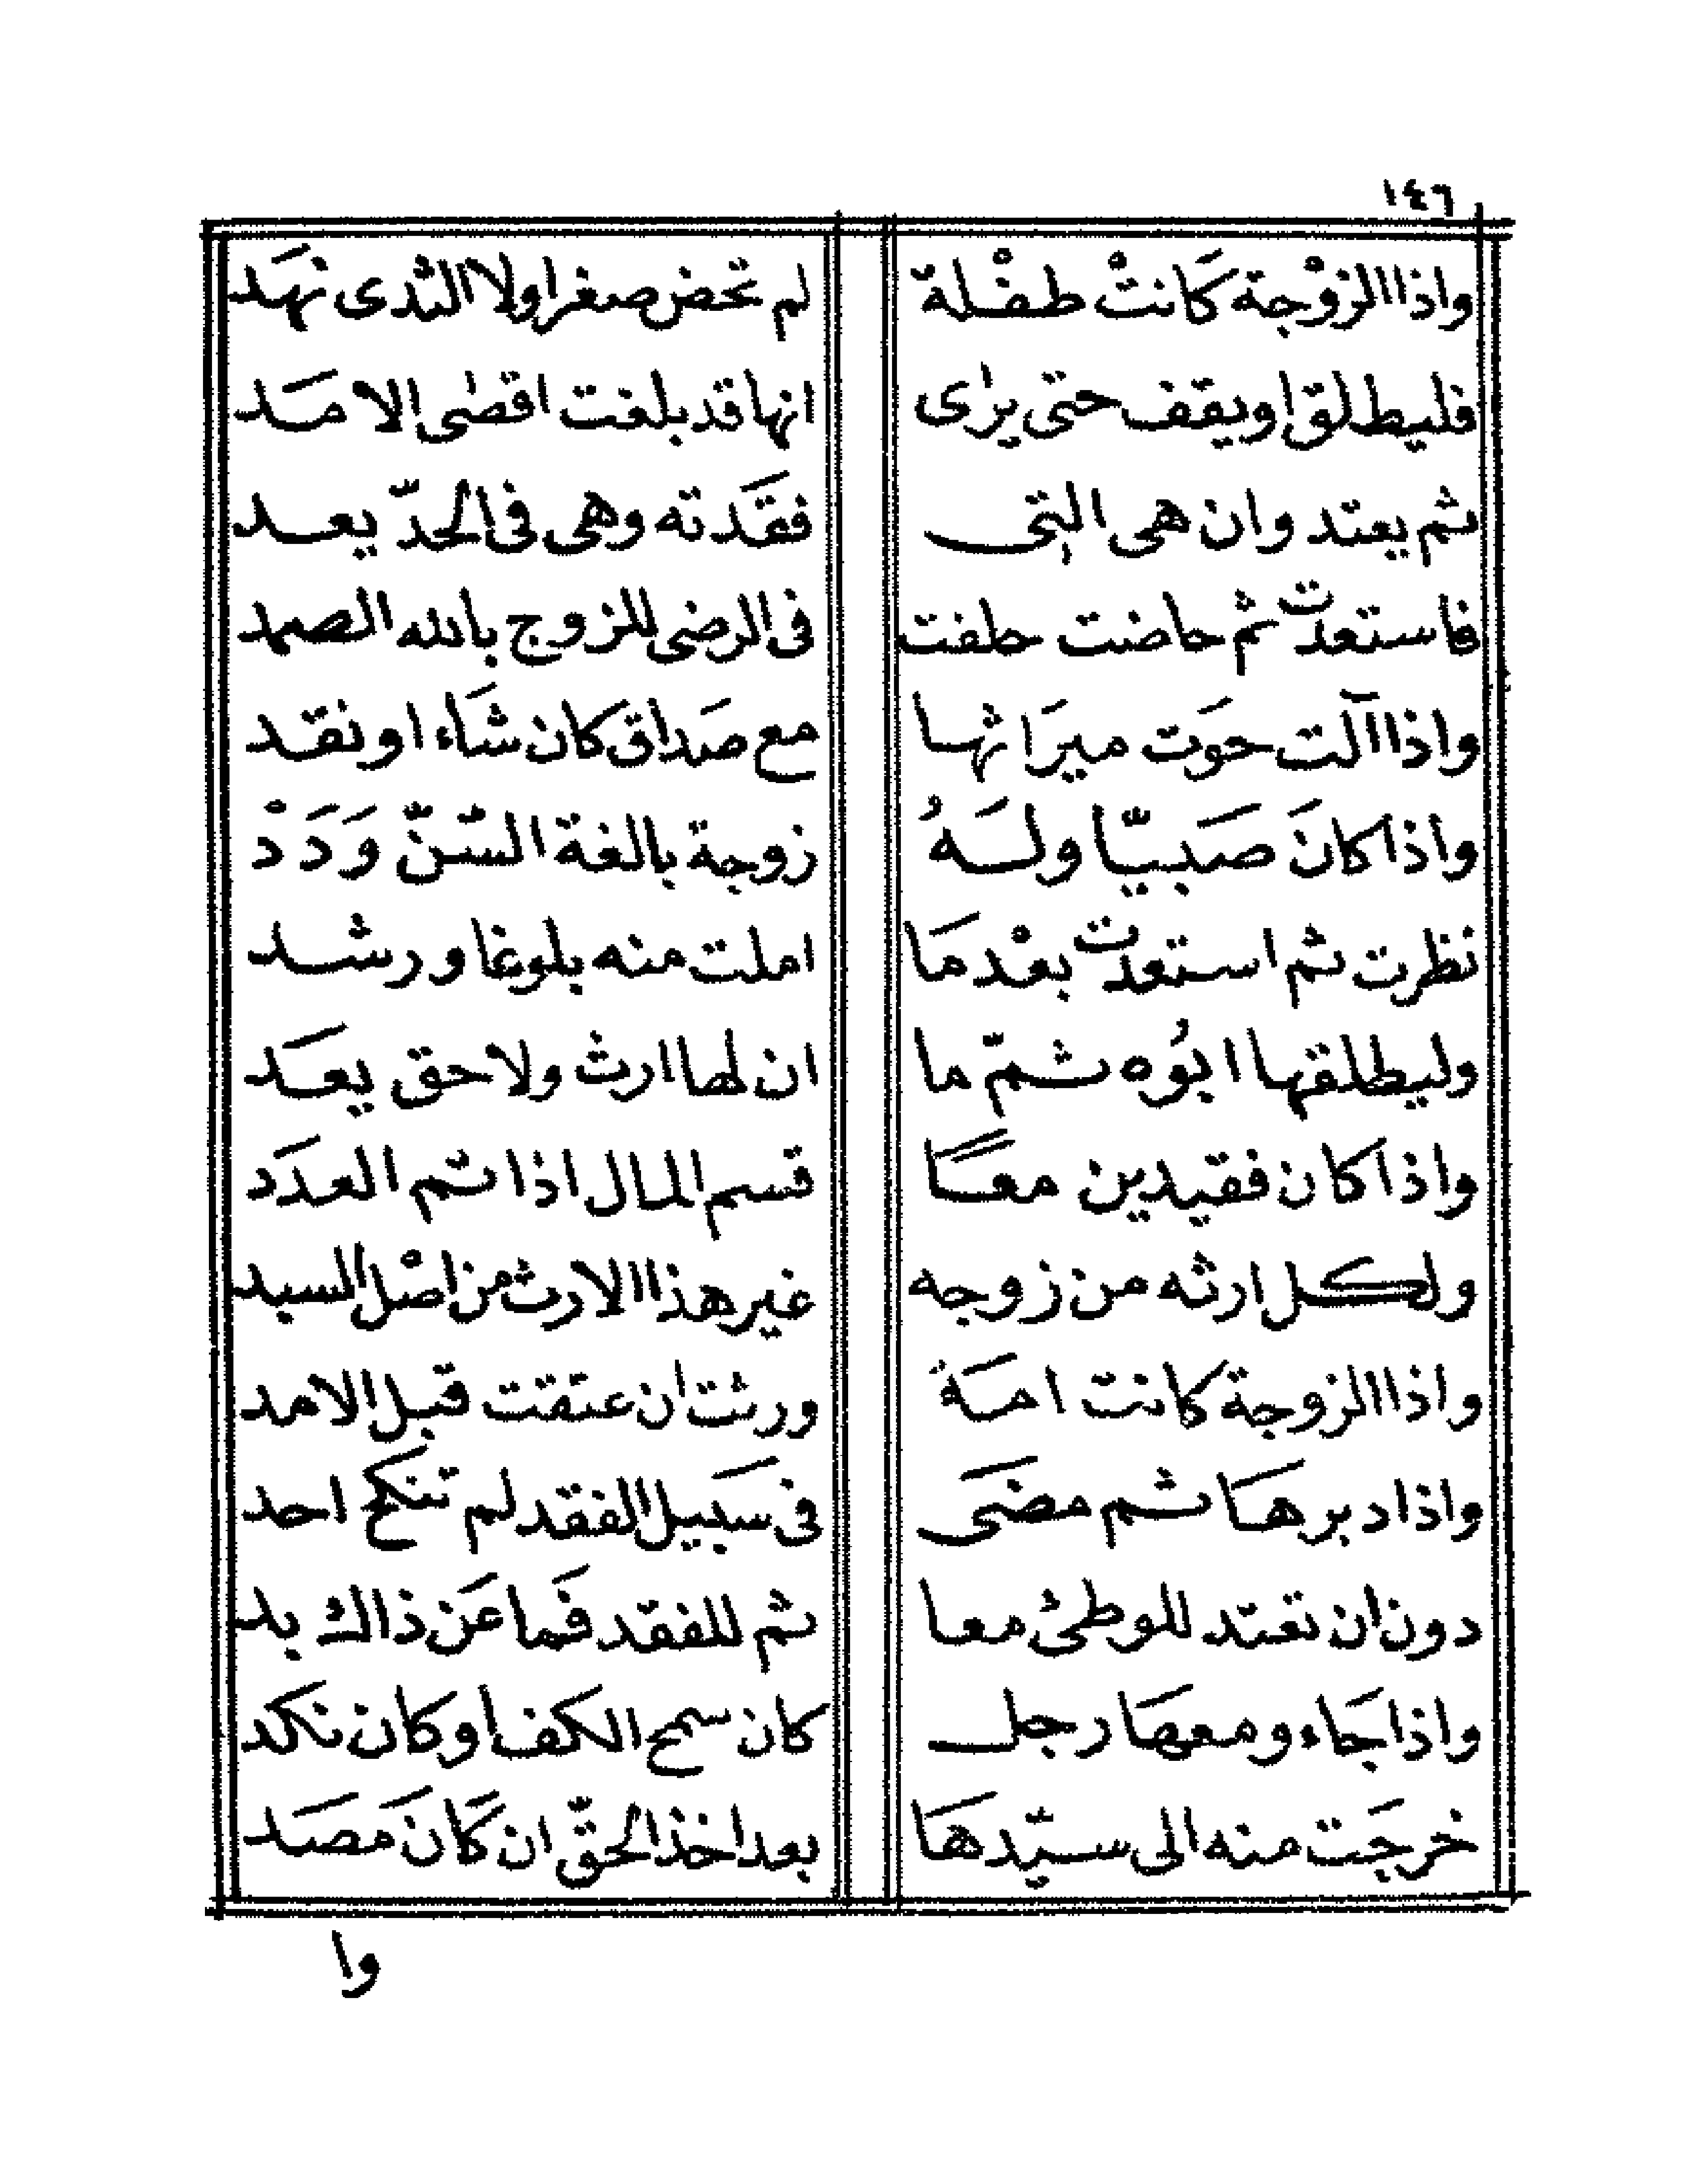 ١٤٦
واذا الزوْجة كَانتْ طفْلة لم تحض صغرا ولا الثدى نهَد
فليطلق او يقف حتى يرٰى انها قد بلغت اقصٰى الامَد
ثم يعتد وان هى التى فقَدته وهى فى الحدّ يعد
فاستعدت ثم حاضت حلفت فى الرضى للزوج بالله الصمد
واذا آلت حوَت ميرَاثها مع صَداق كان شَاء او نقد
واذا كانَ صَبيّا ولَهُ زوجة بالغة السّنّ وَدَدْ
نظرت ثم استعدت بعْدمَا املت منه بلوغا ورشد
وليطلقها ابُوه ثمّ ما ان لها ارث ولا حق يعَد
واذا كان فقيدين معًا قسم المال اذا تم العدَد
ولكل ارثه من زوجه غير هذا الارث من اصْل السيد
واذا الزوجة كانت امَة ورثت ان عتقت قبل الامد
واذا دبرهَا ثم مضَى فى سَبيل الفقد لم تنكح احد
دون ان تعتد للوطئ معا ثم للفقد فَما عَن ذاك بد
واذا جَاء ومعهَا رجل كان سمح الكف او كان نكد
خرجَت منه الى سيّدهَا بعد اخذ الحقّ ان كَانَ مَصَد
وا